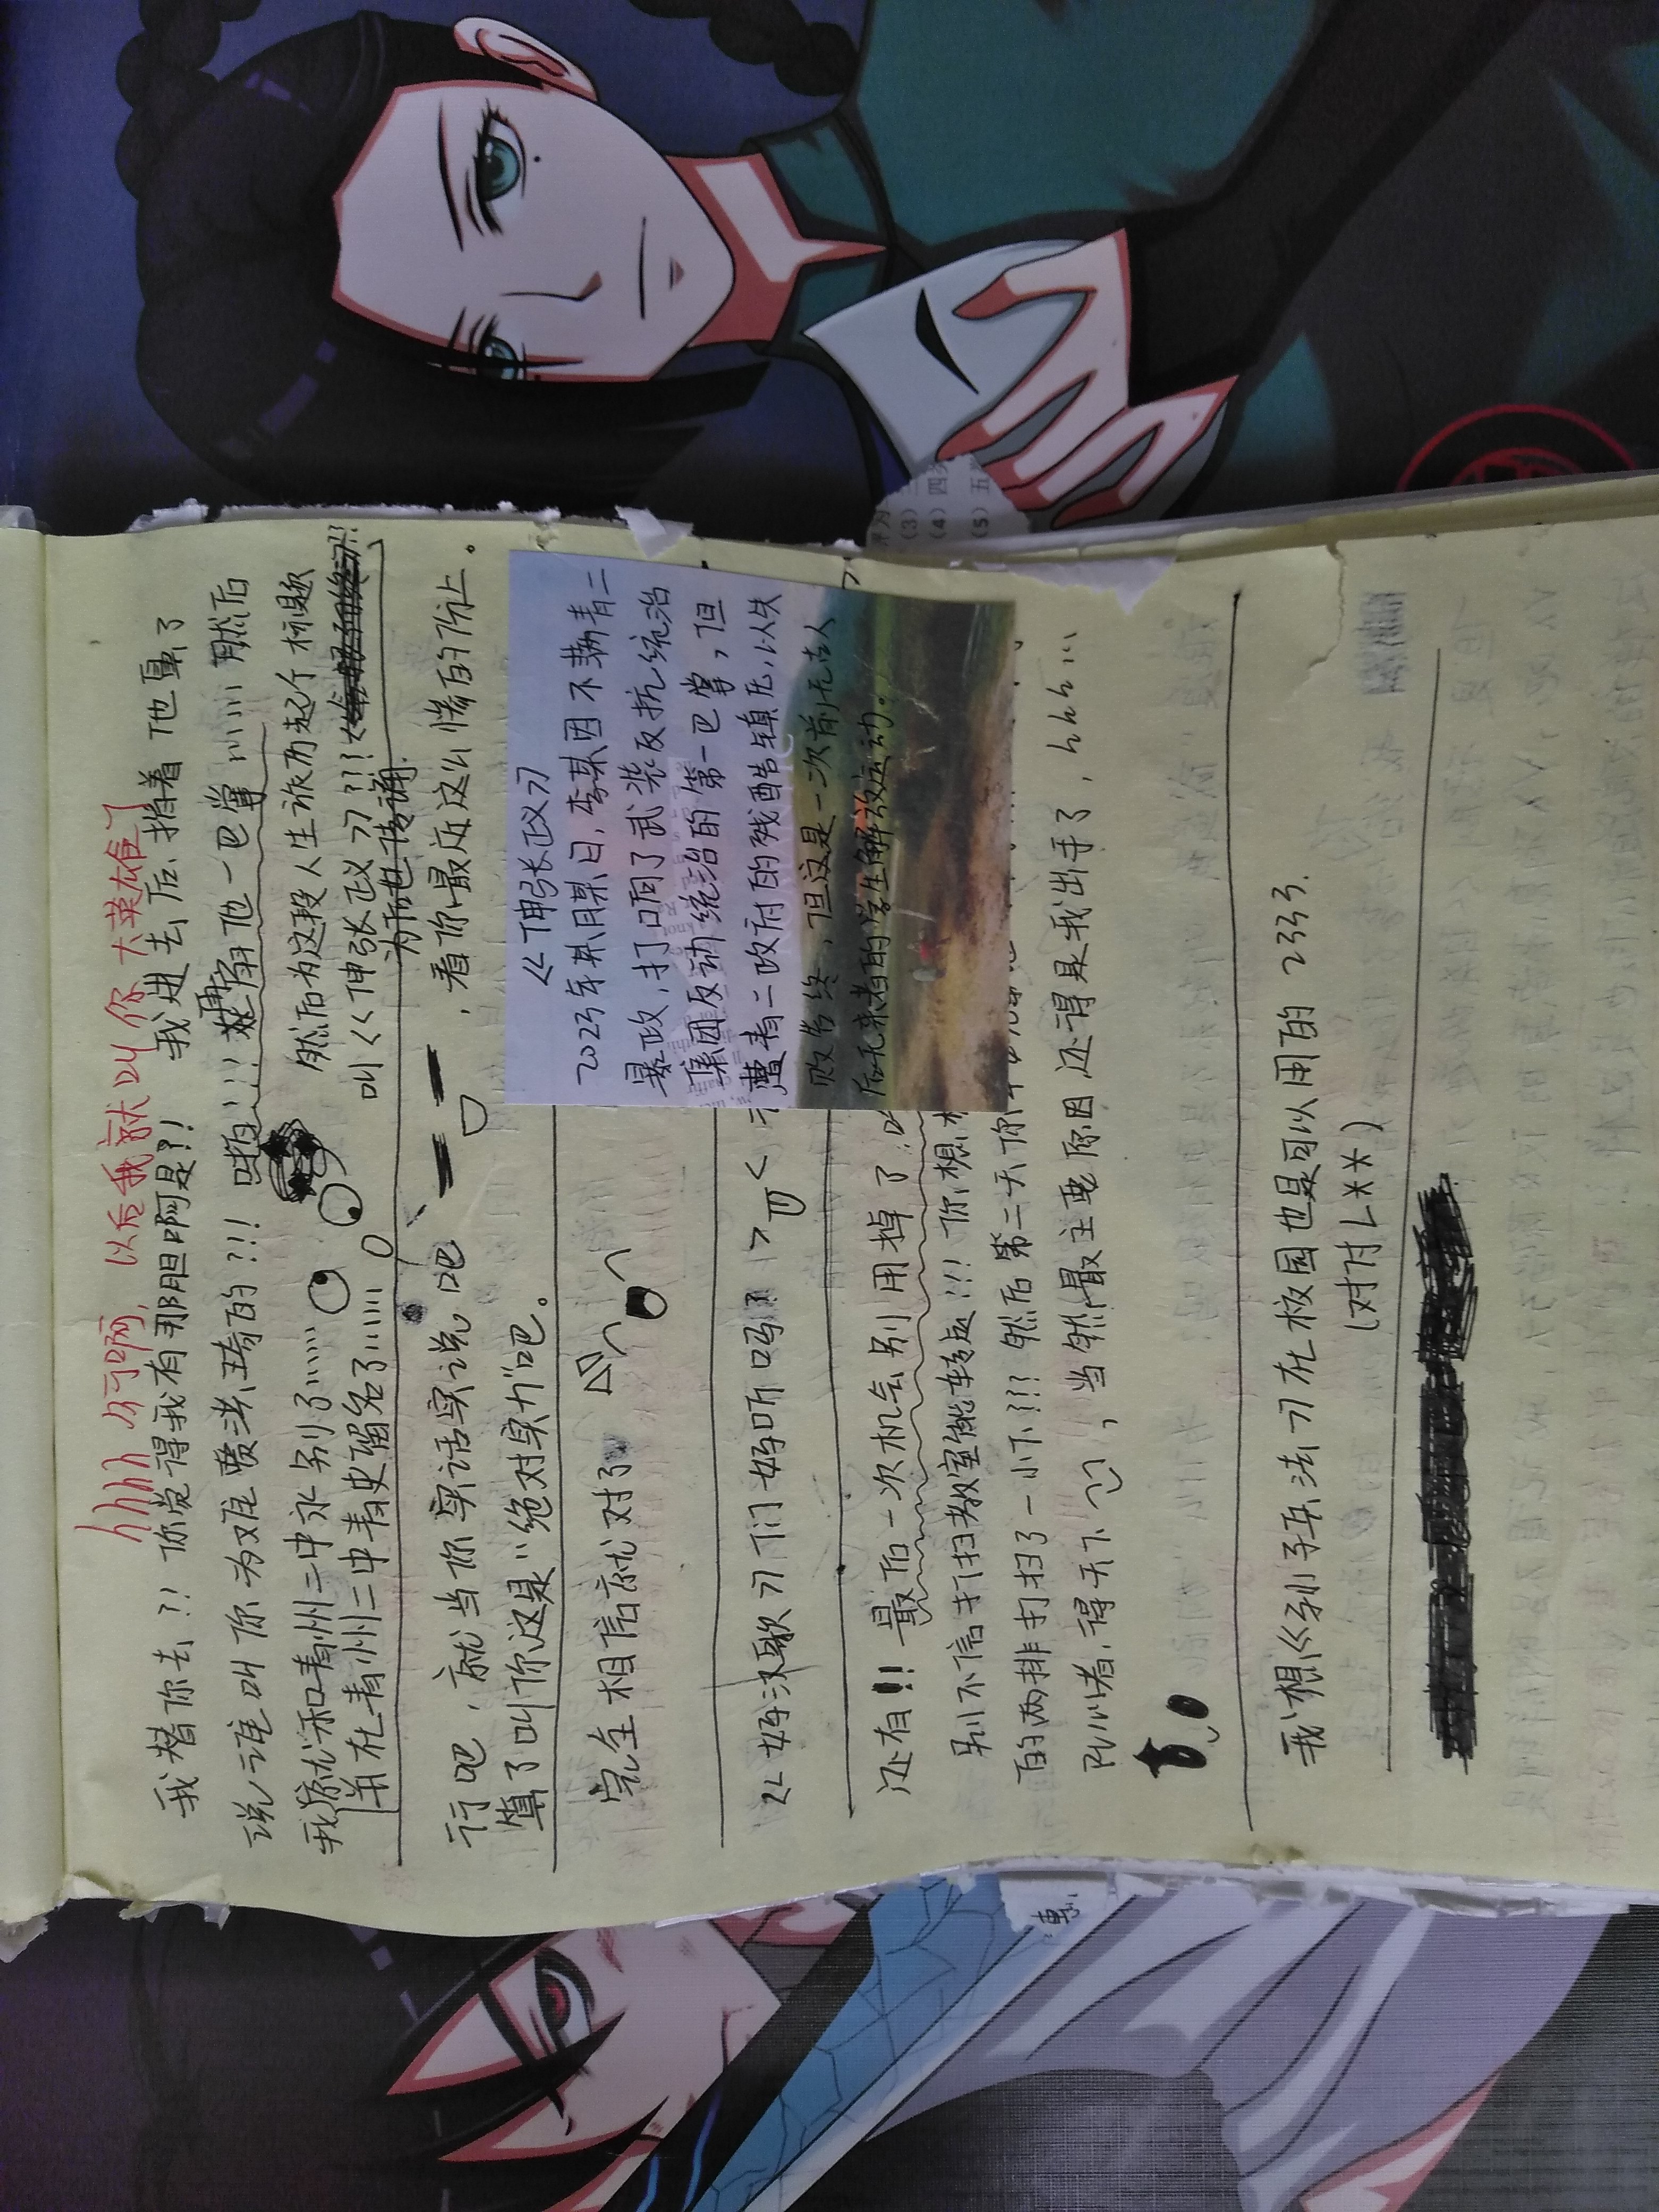 hhhh 行啊, 以后我就叫你大英雄了
我替你去?! 你觉得我有那胆啊是?! 我进去后, 指着他鼻子
说谁叫你为难费洪琦的?!! 啪!!! 再扇他一巴掌…… 然后
我就和青州二中永别了……
并在青州二中青史留名了……
然后为这段人生谱为起个标题
叫《伸张正义》???
为后世传诵.
行吧, 就当你实话实说吧 , 看你最近这么惨的份上。
算了叫你这是"绝对实力"吧。
完全相信就对了
《好汉歌》们好听吗?
还有!! 最后一次机会别用掉了,
别不信打扫教室能转运!!! 你想,
的两排打扫了一小下??? 然后第二天你
得天下 , 当然最主要原因还得是我出手了, hhh…
我想《孙子兵法》在校园也是可以用的 2333.
(对付L**)
《伸张正义》
2023年某月某日, 李某因不满青二
暴政, 打响了武装反抗统治
集团反动统治的第一巴掌, 但
遭青二政府的残酷镇压, 以失
败告终, 但这是一次前无古人
后无来者的学生解放运动。
惠
(3) 三
(4) 四
(5) 五